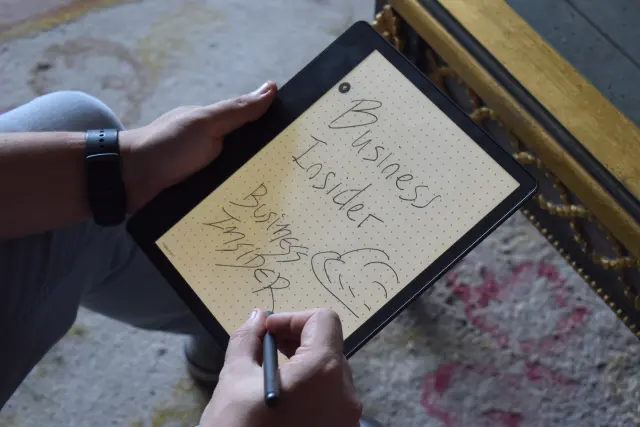 Business
Insider
Business
INSIDER